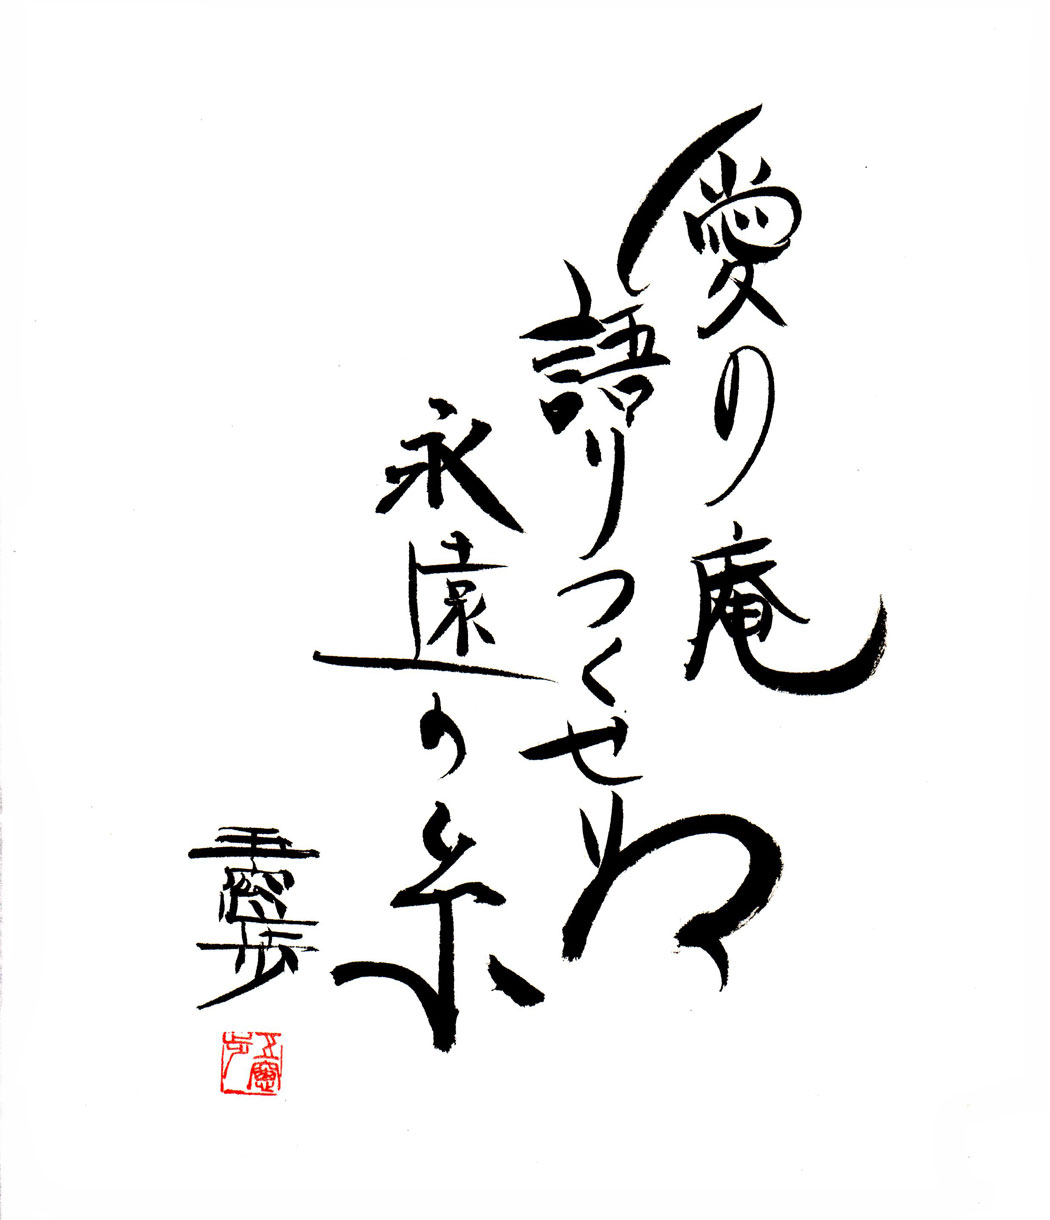 愛の庵
語りつくせぬ
永遠の糸